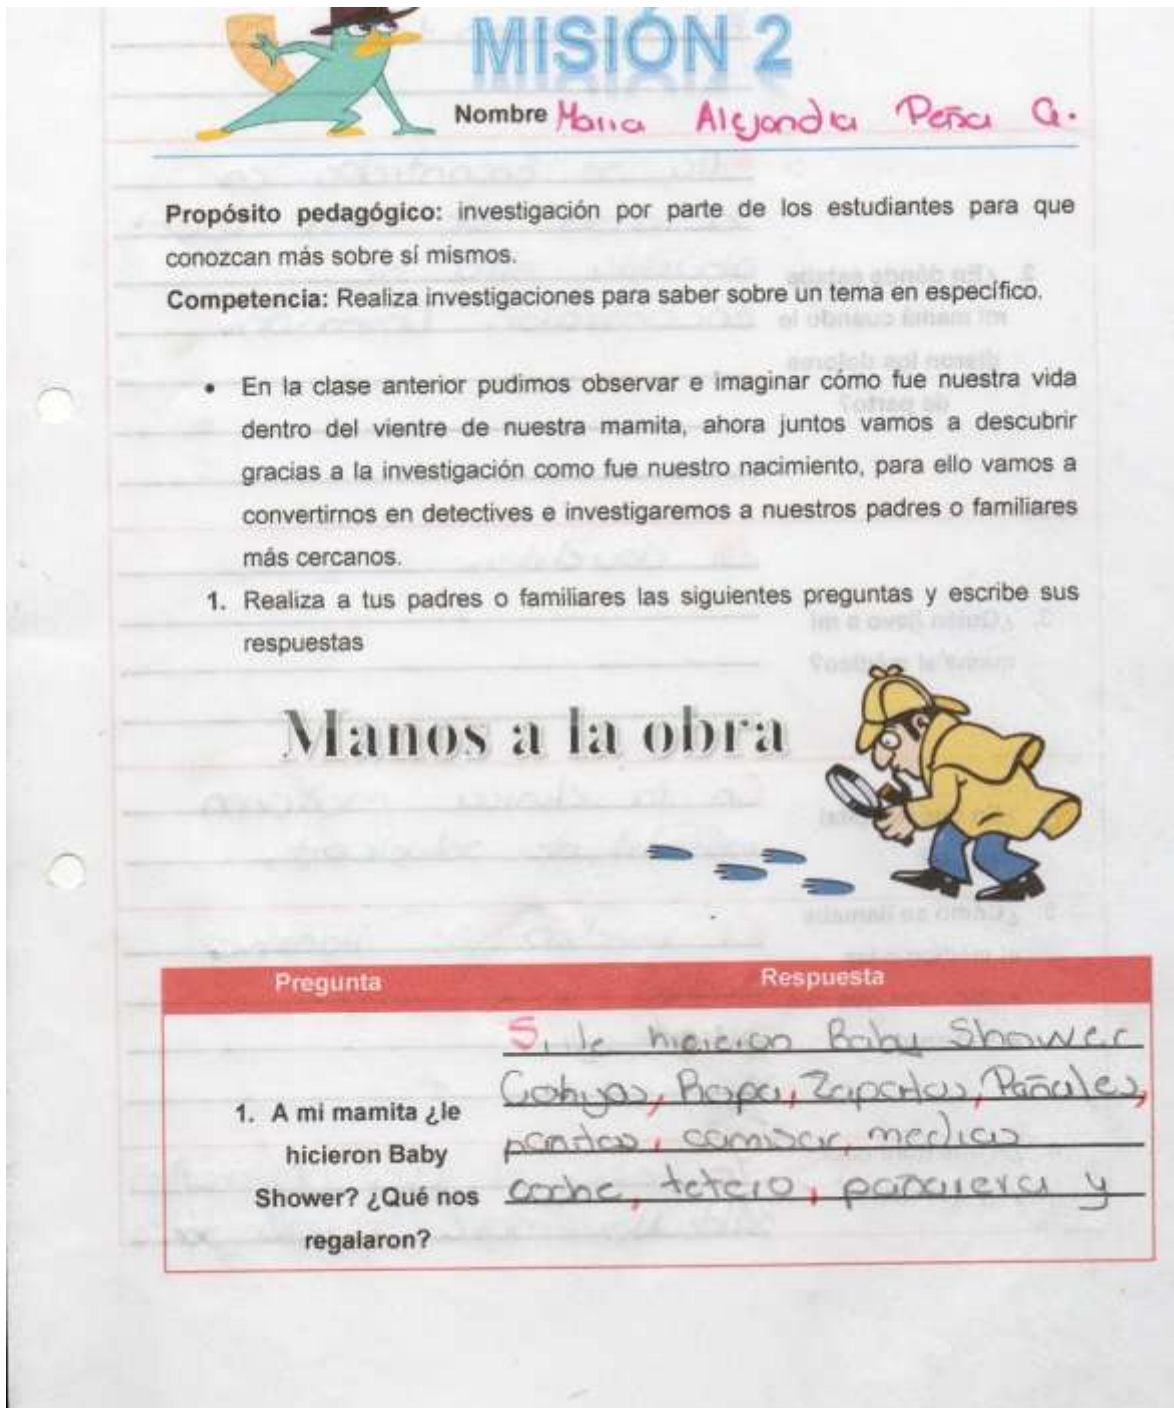 MISIÓN 2
Nombre Maria Alejandra Peña G.
Propósito pedagógico: investigación por parte de los estudiantes para que
conozcan más sobre sí mismos.
Competencia: Realiza investigaciones para saber sobre un tema en específico.
• En la clase anterior pudimos observar e imaginar cómo fue nuestra vida
dentro del vientre de nuestra mamita, ahora juntos vamos a descubrir
gracias a la investigación como fue nuestro nacimiento, para ello vamos a
convertirnos en detectives e investigaremos a nuestros padres o familiares
más cercanos.
1. Realiza a tus padres o familiares las siguientes preguntas y escribe sus
respuestas
Manos a la obra
Pregunta Respuesta
1. A mi mamita ¿le
hicieron Baby
Shower? ¿Qué nos
regalaron?
Si le hicieron Baby Shower
Cobijas, Ropa, Zapatos, Pañales,
camisas, medias
coche, tetero, pañalera y